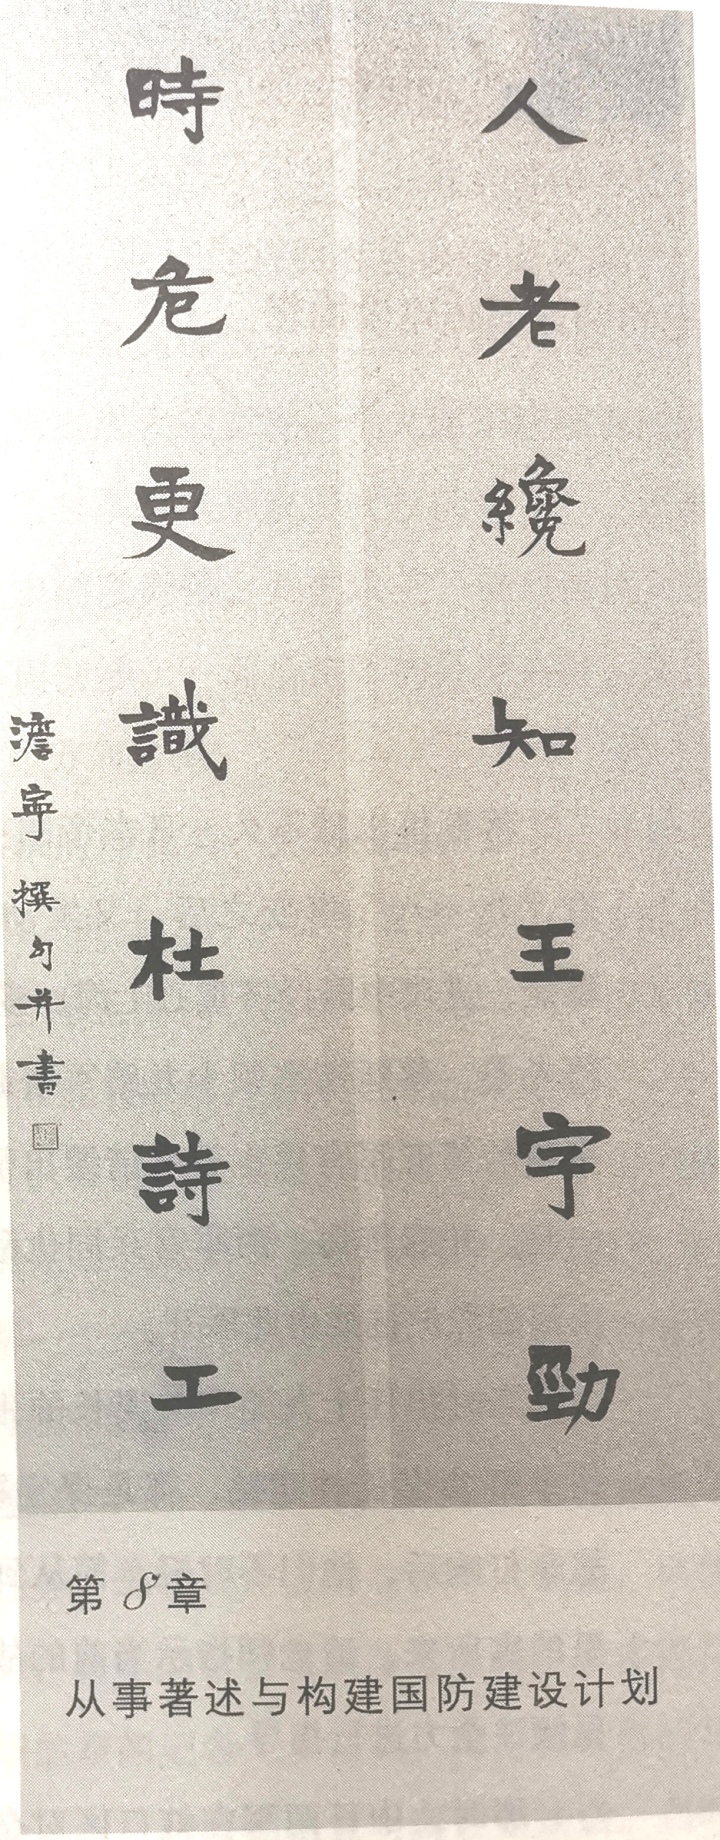 人老纔知王字勁
時危更識杜詩工
澹寧撰句并書
第8章
从事著述与构建国防建设计划